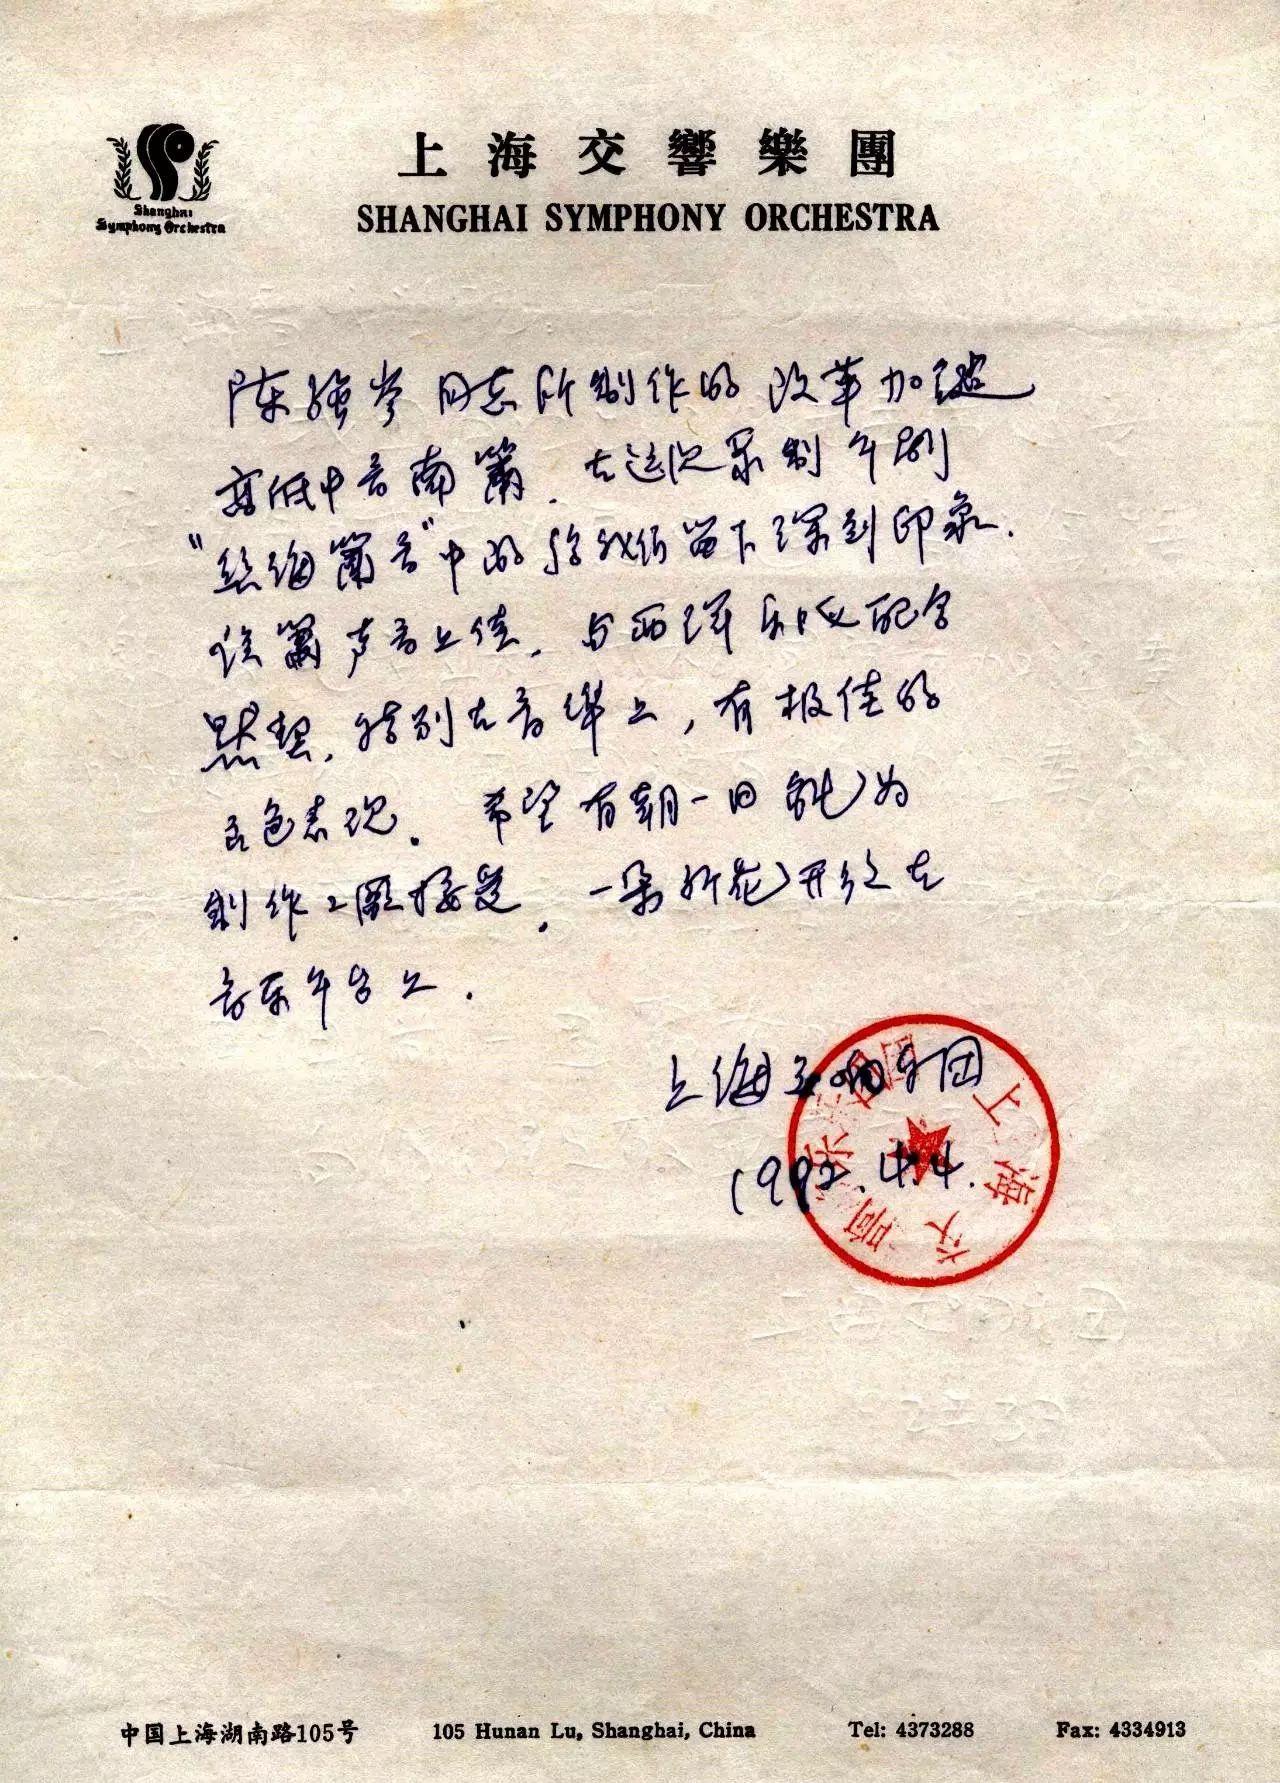 上海交響樂團
Shanghai
Symphony Orchestra
SHANGHAI SYMPHONY ORCHESTRA
陈强岑同志所制作的改革加键
高低中音南箫．在这次录制午剧
“丝海箫音”中的给我们留下深刻印象．
该箫声音上佳．与西洋乐队配合
默契．特别在音準上，有极佳的
色表现．希望有朝一日能为
制作工厂接受．一朵新花开红在
音乐午台上．
上海交响乐团
1992.4.4.
上海交响乐团
中国上海湖南路105号 105 Hunan Lu, Shanghai, China Tel: 4373288 Fax: 4334913